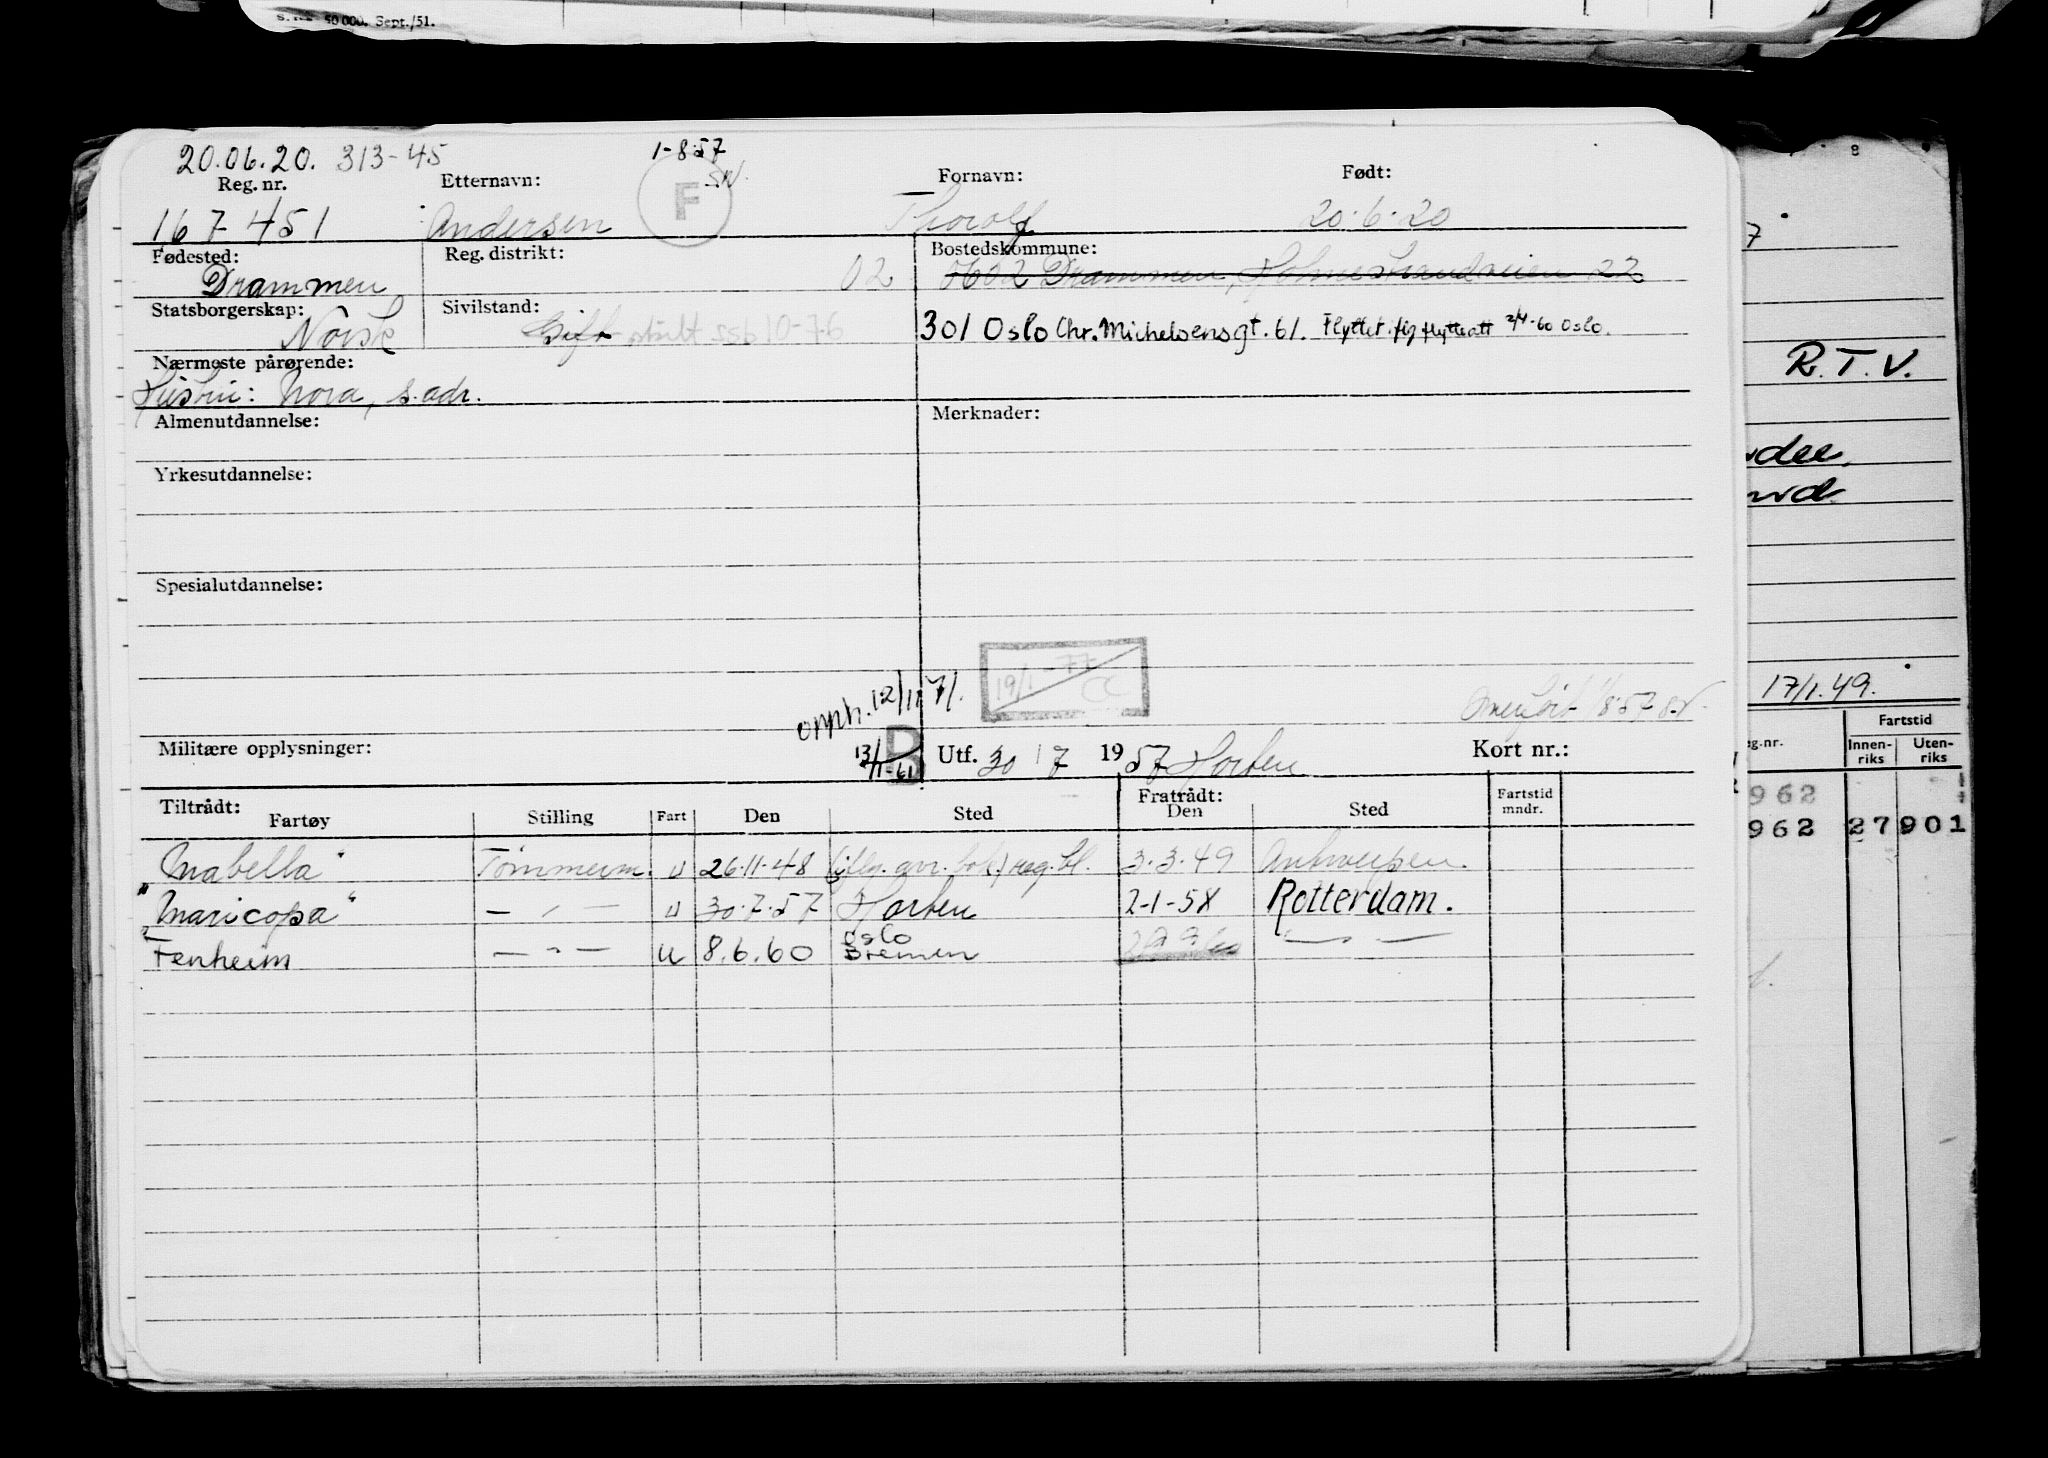 50 000. Sept./51.
20.06.20. 313-45
1-8-57
SN.
F
Reg. nr. Etternavn: Fornavn: Født:
167 451 Andersen Thorolf 20.6.20
Fødested: Reg. distrikt: Bostedskommune:
Drammen 02 0602 Drammen, Holmestrandveien 22
Statsborgerskap: Sivilstand:
Norsk Gift skilt ssb 10-76 301 Oslo Chr. Michelsens gt. 61. Flyttet iflg flytteatt 2/4-60 Oslo.
Nærmeste pårørende:
Hustru: Nora, s. adr.
Almenutdannelse: Merknader:
Yrkesutdannelse:
Spesialutdannelse:
19/1-77
CC
opph. 12/11 71.
1/8 57 SN.
Militære opplysninger: 13/1-61 B Utf. 30 / 7 1957 Horten Kort nr.:
Tiltrådt: Fratrådt:
Fartøy Stilling Fart Den Sted Den Sted Fartstid mndr.
Mabella" Tømmerm. u 26.11.48 (iflg. avr. bok) reg. bl. 3.3.49 Antwerpen.
"Maricopa" — " — u 30.7.57 Horten 2-1-58 Rotterdam.
Fenheim — " — u 8.6.60 Oslo Bremen — " —
8
7
R. T. V.
17/1.49.
Fartstid
eg.nr. Innen-riks Uten-riks
962
962 27 901